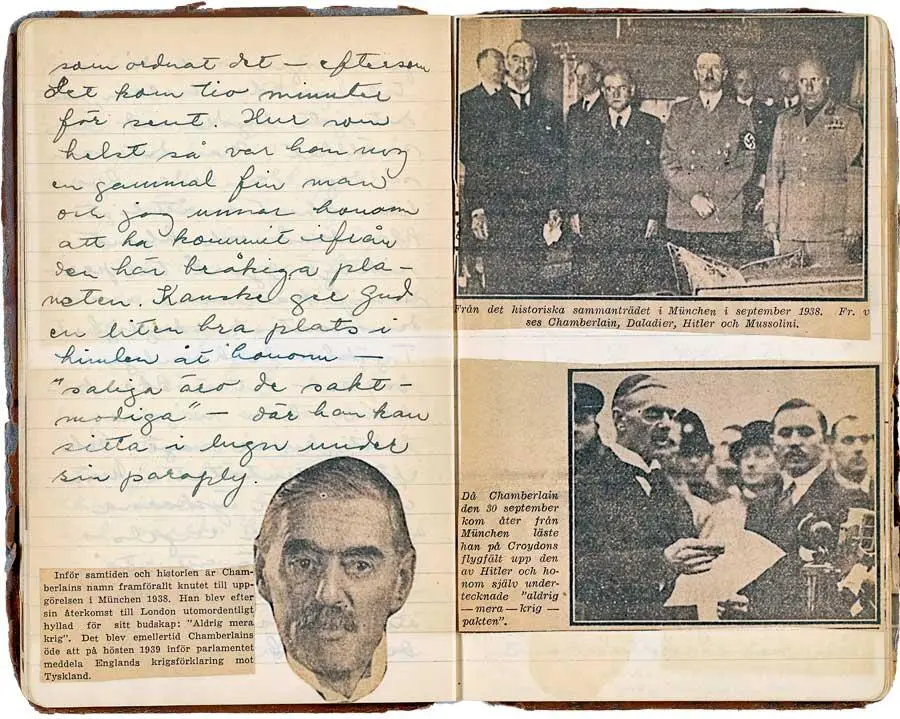 som ordnat det – eftersom
det kom tio minuter
för sent. Hur som
helst så var han nog
en gammal fin man
och jag unnar honom
att ha kommit ifrån
den här bråkiga pla-
neten. Kanske ger Gud
en liten bra plats i
himlen åt honom –
"saliga äro de sakt-
modiga" – där han kan
sitta i lugn under
sin paraply.
Inför samtiden och historien är Cham-
berlains namn framförallt knutet till upp-
görelsen i München 1938. Han blev efter
sin återkomst till London utomordentligt
hyllad för sitt budskap: "Aldrig mera
krig". Det blev emellertid Chamberlains
öde att på hösten 1939 inför parlamentet
meddela Englands krigsförklaring mot
Tyskland.
Från det historiska sammanträdet i München i september 1938. Fr. v
ses Chamberlain, Daladier, Hitler och Mussolini.
Då Chamberlain
den 30 september
kom åter från
München läste
han på Croydons
flygfält upp den
av Hitler och ho-
nom själv under-
tecknade "aldrig
—mera—krig—
pakten".